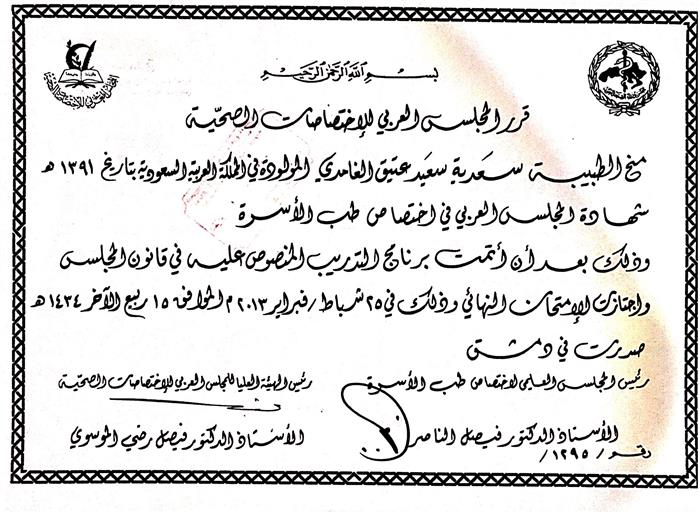 بسم الله الرحمن الرحيم
قرر المجلس العربي للإختصاصات الصحيّة
منح الطبيبة سعدية سعيد عتيق الغامدي المولودة في المملكة العربية السعودية بتاريخ ١٣٩١ هـ
شهادة المجلس العربي في اختصاص طب الأسرة
وذلك بعد أن أتمت برنامج التدريب المنصوص عليه في قانون المجلس
واجتازت الإمتحان النهائي وذلك في ٢٥ شباط / فبراير ٢٠١٣ م الموافق ١٥ ربيع الآخر ١٤٣٤ هـ
صدرت في دمشق
رئيس المجلس العلمي لاختصاص طب الأسرة
رئيس الهيئة العليا للمجلس العربي للإختصاصات الصحيّة
الأستاذ الدكتور فيصل الناصر
الأستاذ الدكتور فيصل رضي الموسوي
رقم / ١٢٩٥ /